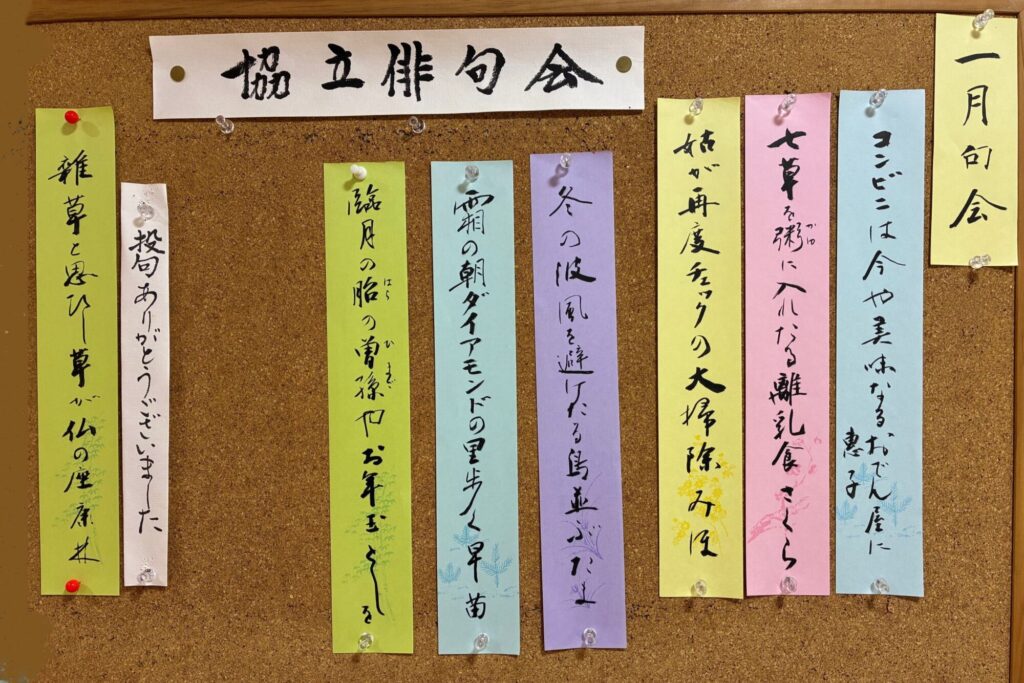 協立俳句会
一月句会
コンビニは今や美味なるおでん屋に
恵子
七草を粥に入れたる離乳食 さくら
がゆ
姑が再度チェックの大掃除 みほ
冬の波風を避けたる鳥並ぶ たま
霜の朝ダイアモンドの里歩く 早苗
臨月の胎の曽孫やお年玉 としを
はら
ひまご
投句ありがとうございました
雑草と思ひし草が仏の座